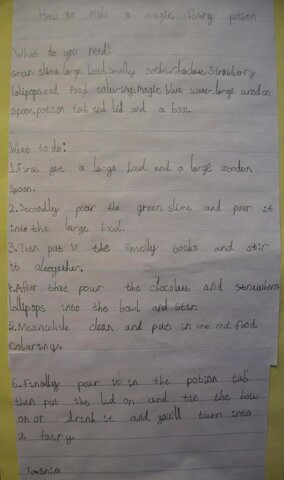 How to make a magic fairy potion
What do you need:
Green slime, large bowl, smelly socks, choclate, strawberry
lollipops, red food colouring, magic blue water, large wooden
spoon, potion tub and lid and a bow.
What to do:
1. First get a large bowl and a large wooden
spoon.
2. Secondley pour the green slime and pour it
into the large bowl.
3. Then put in the smelly socks and stir
it altogether.
4. After that pour the choclate and strawberry
lollipops into the bowl and stir.
5. Meanwhile clean and put in the red food
colouring.
6. Finally pour it in the potion tub
then put the lid on and tie the bow
on or drink it and you'll turn into
a fairy
Tasnim